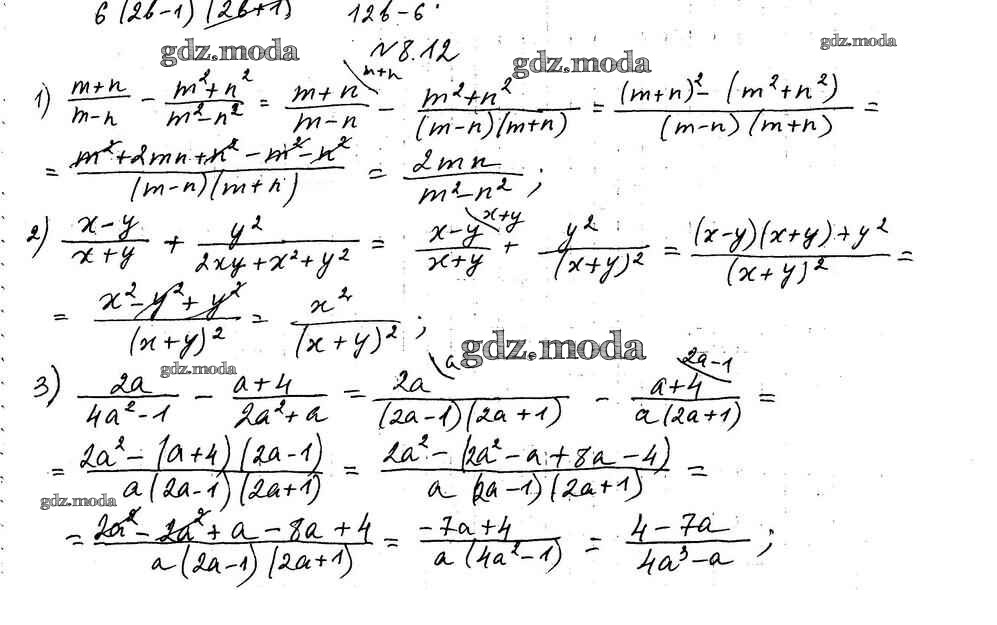 6(2b-1)(2b+1) 12b-6.
gdz.moda №8.12 gdz.moda gdz.moda
1) (m+n)/(m-n) - (m²+n²)/(m²-n²) = (m+n)/(m-n) \m+n - (m²+n²)/((m-n)(m+n)) = ((m+n)² - (m²+n²))/((m-n)(m+n)) =
= (m²+2mn+n²-m²-n²)/((m-n)(m+n)) = 2mn/(m²-n²);
2) (x-y)/(x+y) + y²/(2xy+x²+y²) = (x-y)/(x+y) \x+y + y²/(x+y)² = ((x-y)(x+y)+y²)/(x+y)² =
= (x²-y²+y²)/(x+y)² = x²/(x+y)²;
gdz.moda gdz.moda
3) 2a/(4a²-1) - (a+4)/(2a²+a) = 2a/((2a-1)(2a+1)) \a - (a+4)/(a(2a+1)) \2a-1 =
= (2a²-(a+4)(2a-1))/(a(2a-1)(2a+1)) = (2a²-(2a²-a+8a-4))/(a(2a-1)(2a+1)) =
gdz.moda
= (2a²-2a²+a-8a+4)/(a(2a-1)(2a+1)) = (-7a+4)/(a(4a²-1)) = (4-7a)/(4a³-a);